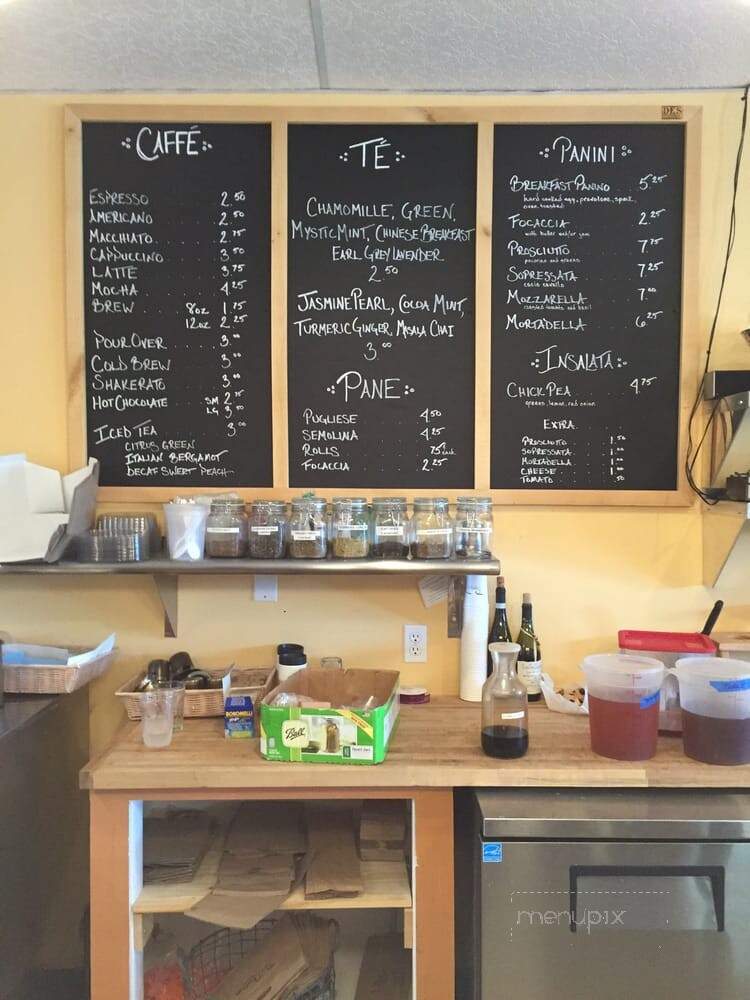 CAFFÉ
ESPRESSO 2.50
AMERICANO 2.50
MACCHIATO 2.75
CAPPUCCINO 3.50
LATTÉ 3.75
MOCHA 4.25
BREW 8oz 1.75
12oz 2.25
POUR OVER 3.00
COLD BREW 3.00
SHAKERATO 3.00
HOT CHOCOLATE SM 2.75
LG 3.50
ICED TEA 3.00
CITRUS GREEN
ITALIAN BERGAMOT
DECAF SWEET PEACH
TÉ
CHAMOMILLE, GREEN,
MYSTIC MINT, CHINESE BREAKFAST
EARL GREY LAVENDER
2.50
JASMINE PEARL, COCOA MINT,
TURMERIC GINGER, MASALA CHAI
3.00
PANE
PUGLIESE 4.50
SEMOLINA 4.25
ROLLS .75 each
FOCACCIA 2.25
DKS
PANINI
BREAKFAST PANINO 5.25
hard cooked egg, provolone, speck,
oven toasted
FOCACCIA 2.25
with butter and/or jam
PROSCIUTTO 7.75
pecorino and greens
SOPRESSATA 7.25
cacio cavallo
MOZZARELLA 7.00
roasted tomato and basil
MORTADELLA 6.25
INSALATA
CHICK PEA 4.75
greens, lemon, red onion
EXTRA
PROSCIUTTO 1.50
SOPRESSATA 1.00
MORTADELLA 1.00
CHEESE 1.00
TOMATO .50
BONOMELLI
Ball
menupix